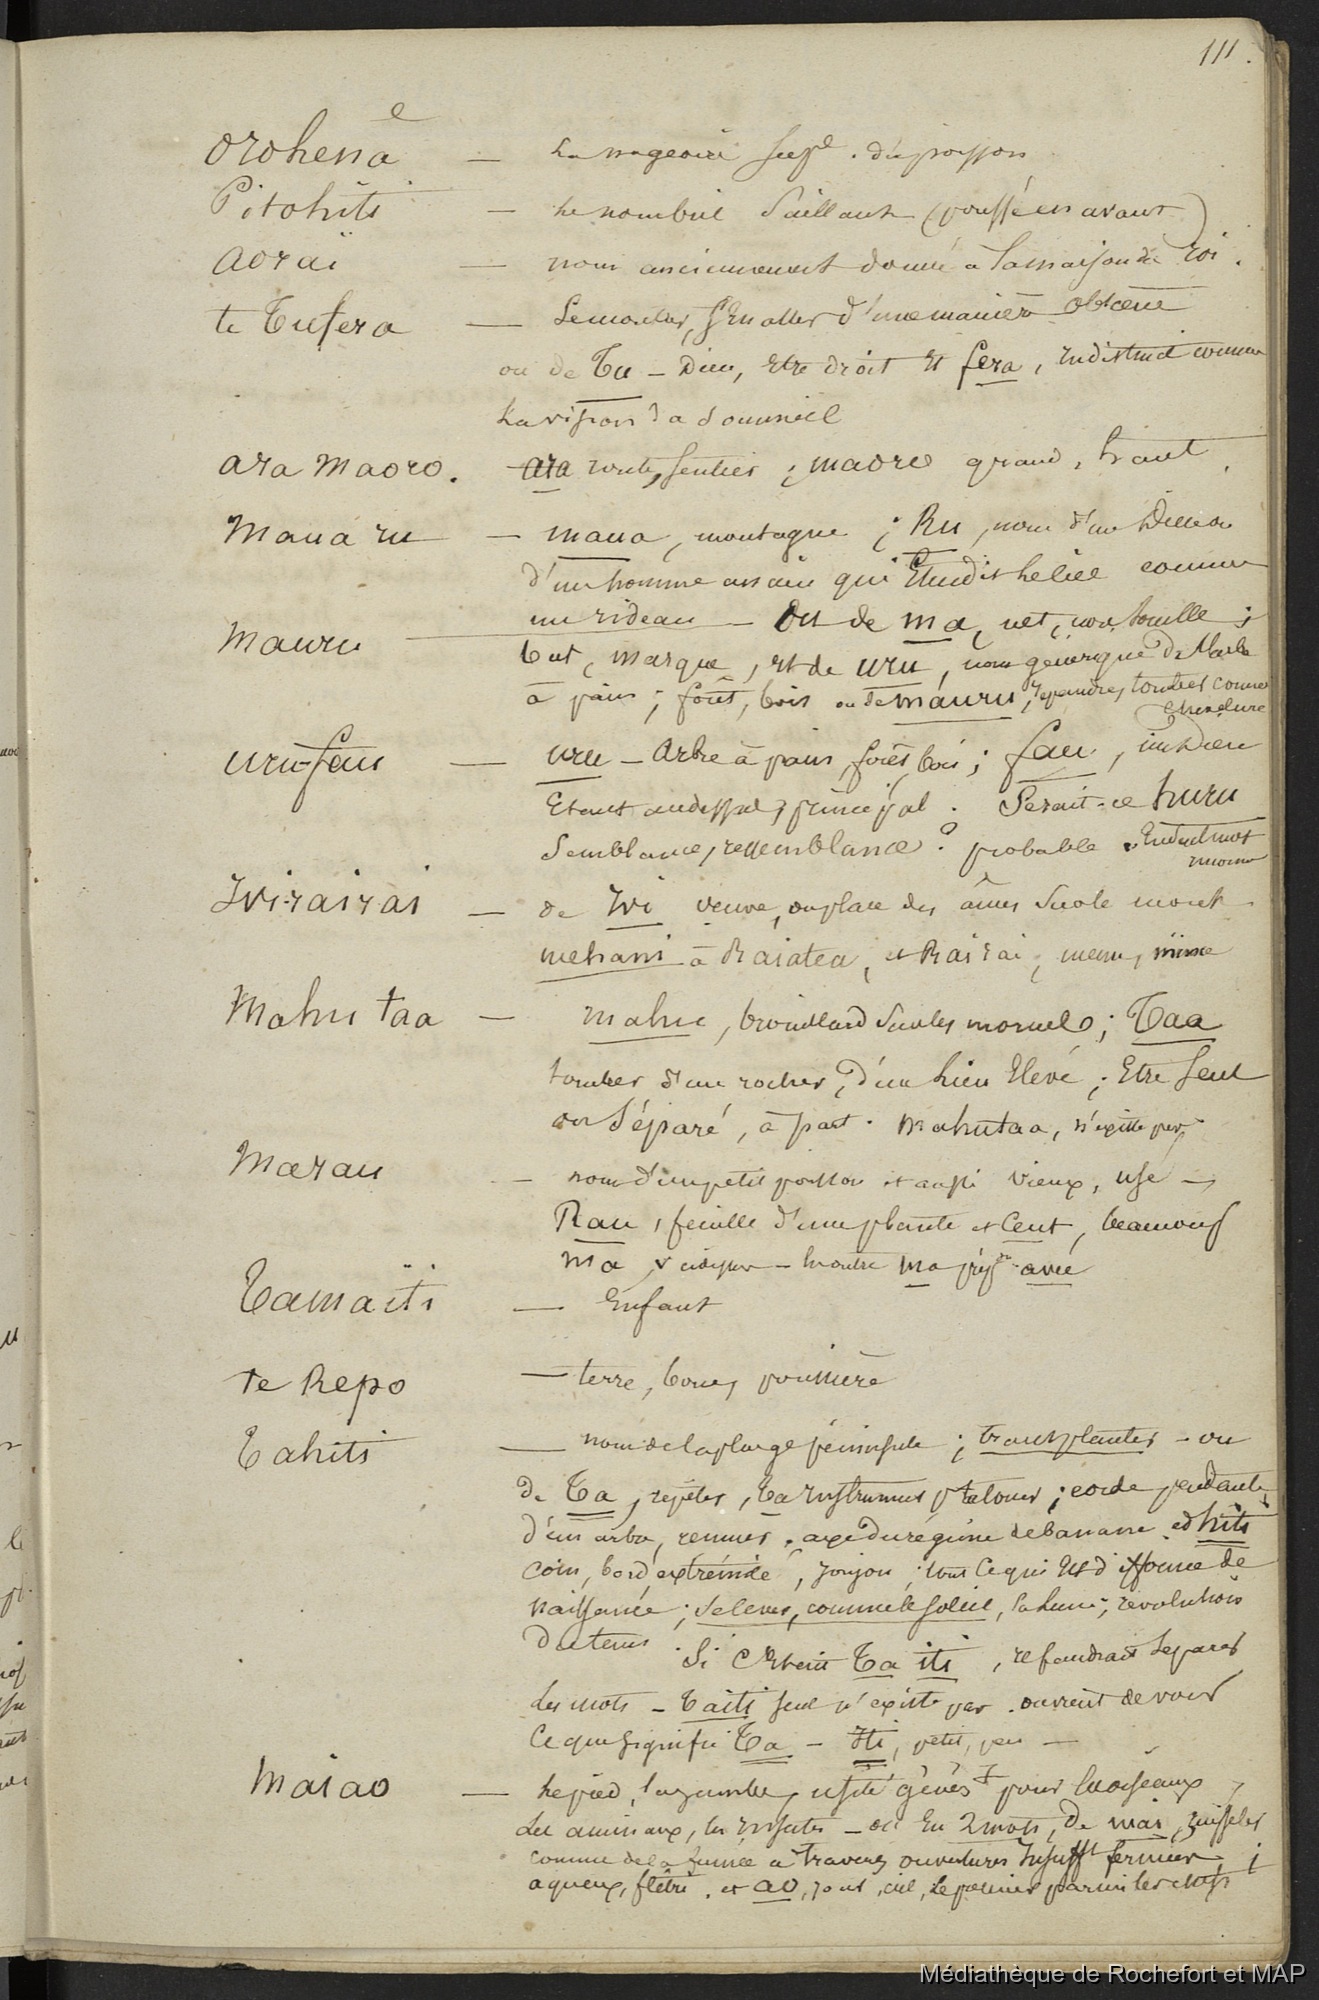 111.
orohena e — La nageoire sup.e du poisson
Pitohiti — Le nombril saillant (poussé en avant)
aoraï — nom anciennement donné a la maison du roi.
te Tufera — Se montrer, s'en aller d'une manière obscène
ou de Tu — Dieu, être droit et fera, indistinct comme
la vision d a sommeil
ara maoro. ara route, sentier ; maoro grand, haut
Mauaru — maua, montagne ; Ru, nom d'un Dieu ou
d'un homme ancien qui étendit le ciel comme
un rideau
Mauru — Ou de ma, net, non souillé ;
but, marque, et de uru, nom générique de l'arbre
à pain ; forêt, bois ou de mauru, tomber comme
chevelure
uru-fau — uru — arbre à pain, forêt, bois ; fau, un Dieu
étant au dessus, principal. Serait-ce huru
Semblance, ressemblance ? probable.
Ivi-rairai — de Ivi veuve, ou place des âmes sur le mont
mehani à Raiatea, et Rairai, menu, mince
Mahu taa — mahu, brouillard sur les mornes ; Taa
tomber d'un rocher, d'un lieu élevé ; être seul
ou séparé, à part. Mahutaa, n'existe pas
Marau — nom d'un petit poisson et aussi vieux, usé —
Rau, feuille d'une plante et Cent, beaucoup
ma, avec
Tamaïti — Enfant
te Repo — terre, boue, poussière
Tahiti — nom de la plus gde péninsule ; transplanter — ou
de Ta, répéter, Ta instrument pr tatouer ; corde pendante
d'un arbre, remuer, axe du régime de banane et hiti
coin, bord, extrémité, ; tout ce qui est difforme de
naissance ; se lever, comme le soleil, la lune ; révolution
du tems. Si c'était Ta iti, il faudrait séparer
les mots — Taiti seul n'existe pas.
ce que signifie Ta — Iti, petit, peu —
Maiao — Le pied, la jambe, usité génért pour les oiseaux,
les animaux, les insectes — ou en 2 mots, de mai,
comme de la fumée a travers ouvertures insufft fermées ;
aqueux, flétri. et ao, jour, ciel, le premier parmi les
Médiathèque de Rochefort et MAP